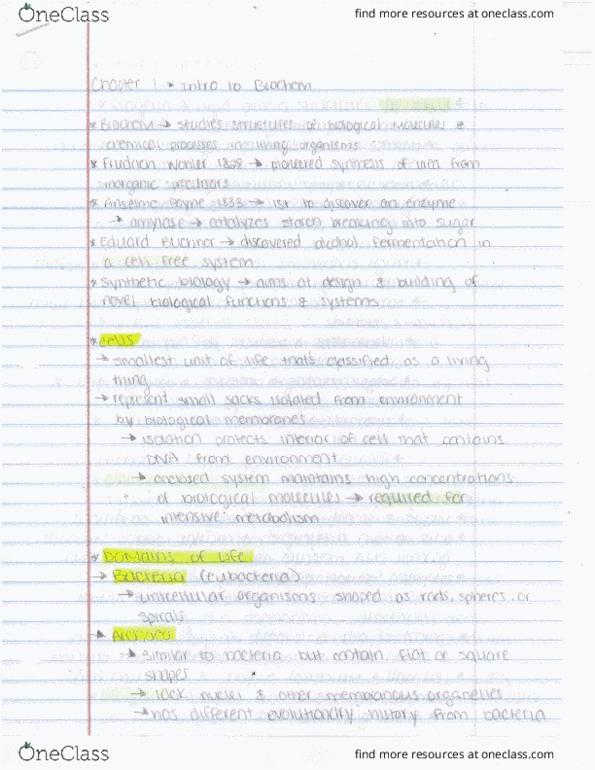 OneClass
find more resources at oneclass.com
Chapter 1 → Intro to Biochem
* Biochem → studies structures of biological molecules &
chemical processes in living organisms
* Friedrich Wohler 1828 → pioneered synthesis of urea from
inorganic
* Anselme Payne 1833 → 1st to discover an enzyme
→ amylase → catalyzes starch breaking into sugar
* Eduard Buchner → discovered alcohol fermentation in
a cell free system
* Synthetic biology → aims at design & building of
novel biological functions & systems
* Cells
→ smallest unit of life thats classified as a living
thing
→ represent small sacks isolated from environment
by biological membranes
→ isolation protects interior of cell that contains
DNA from environment
→ enclosed system maintains high concentrations
of biological molecules → required for
intensive metabolism
* Domains of Life
→ Bacteria (eubacteria)
→ unicellular organisms shaped as rods, spheres or
spirals
→ Archaea
→ similar to bacteria but contain flat or square
shapes
→ lack nuclei & other membranous organelles
→ has different evolutionary history from bacteria
OneClass
find more resources at oneclass.com